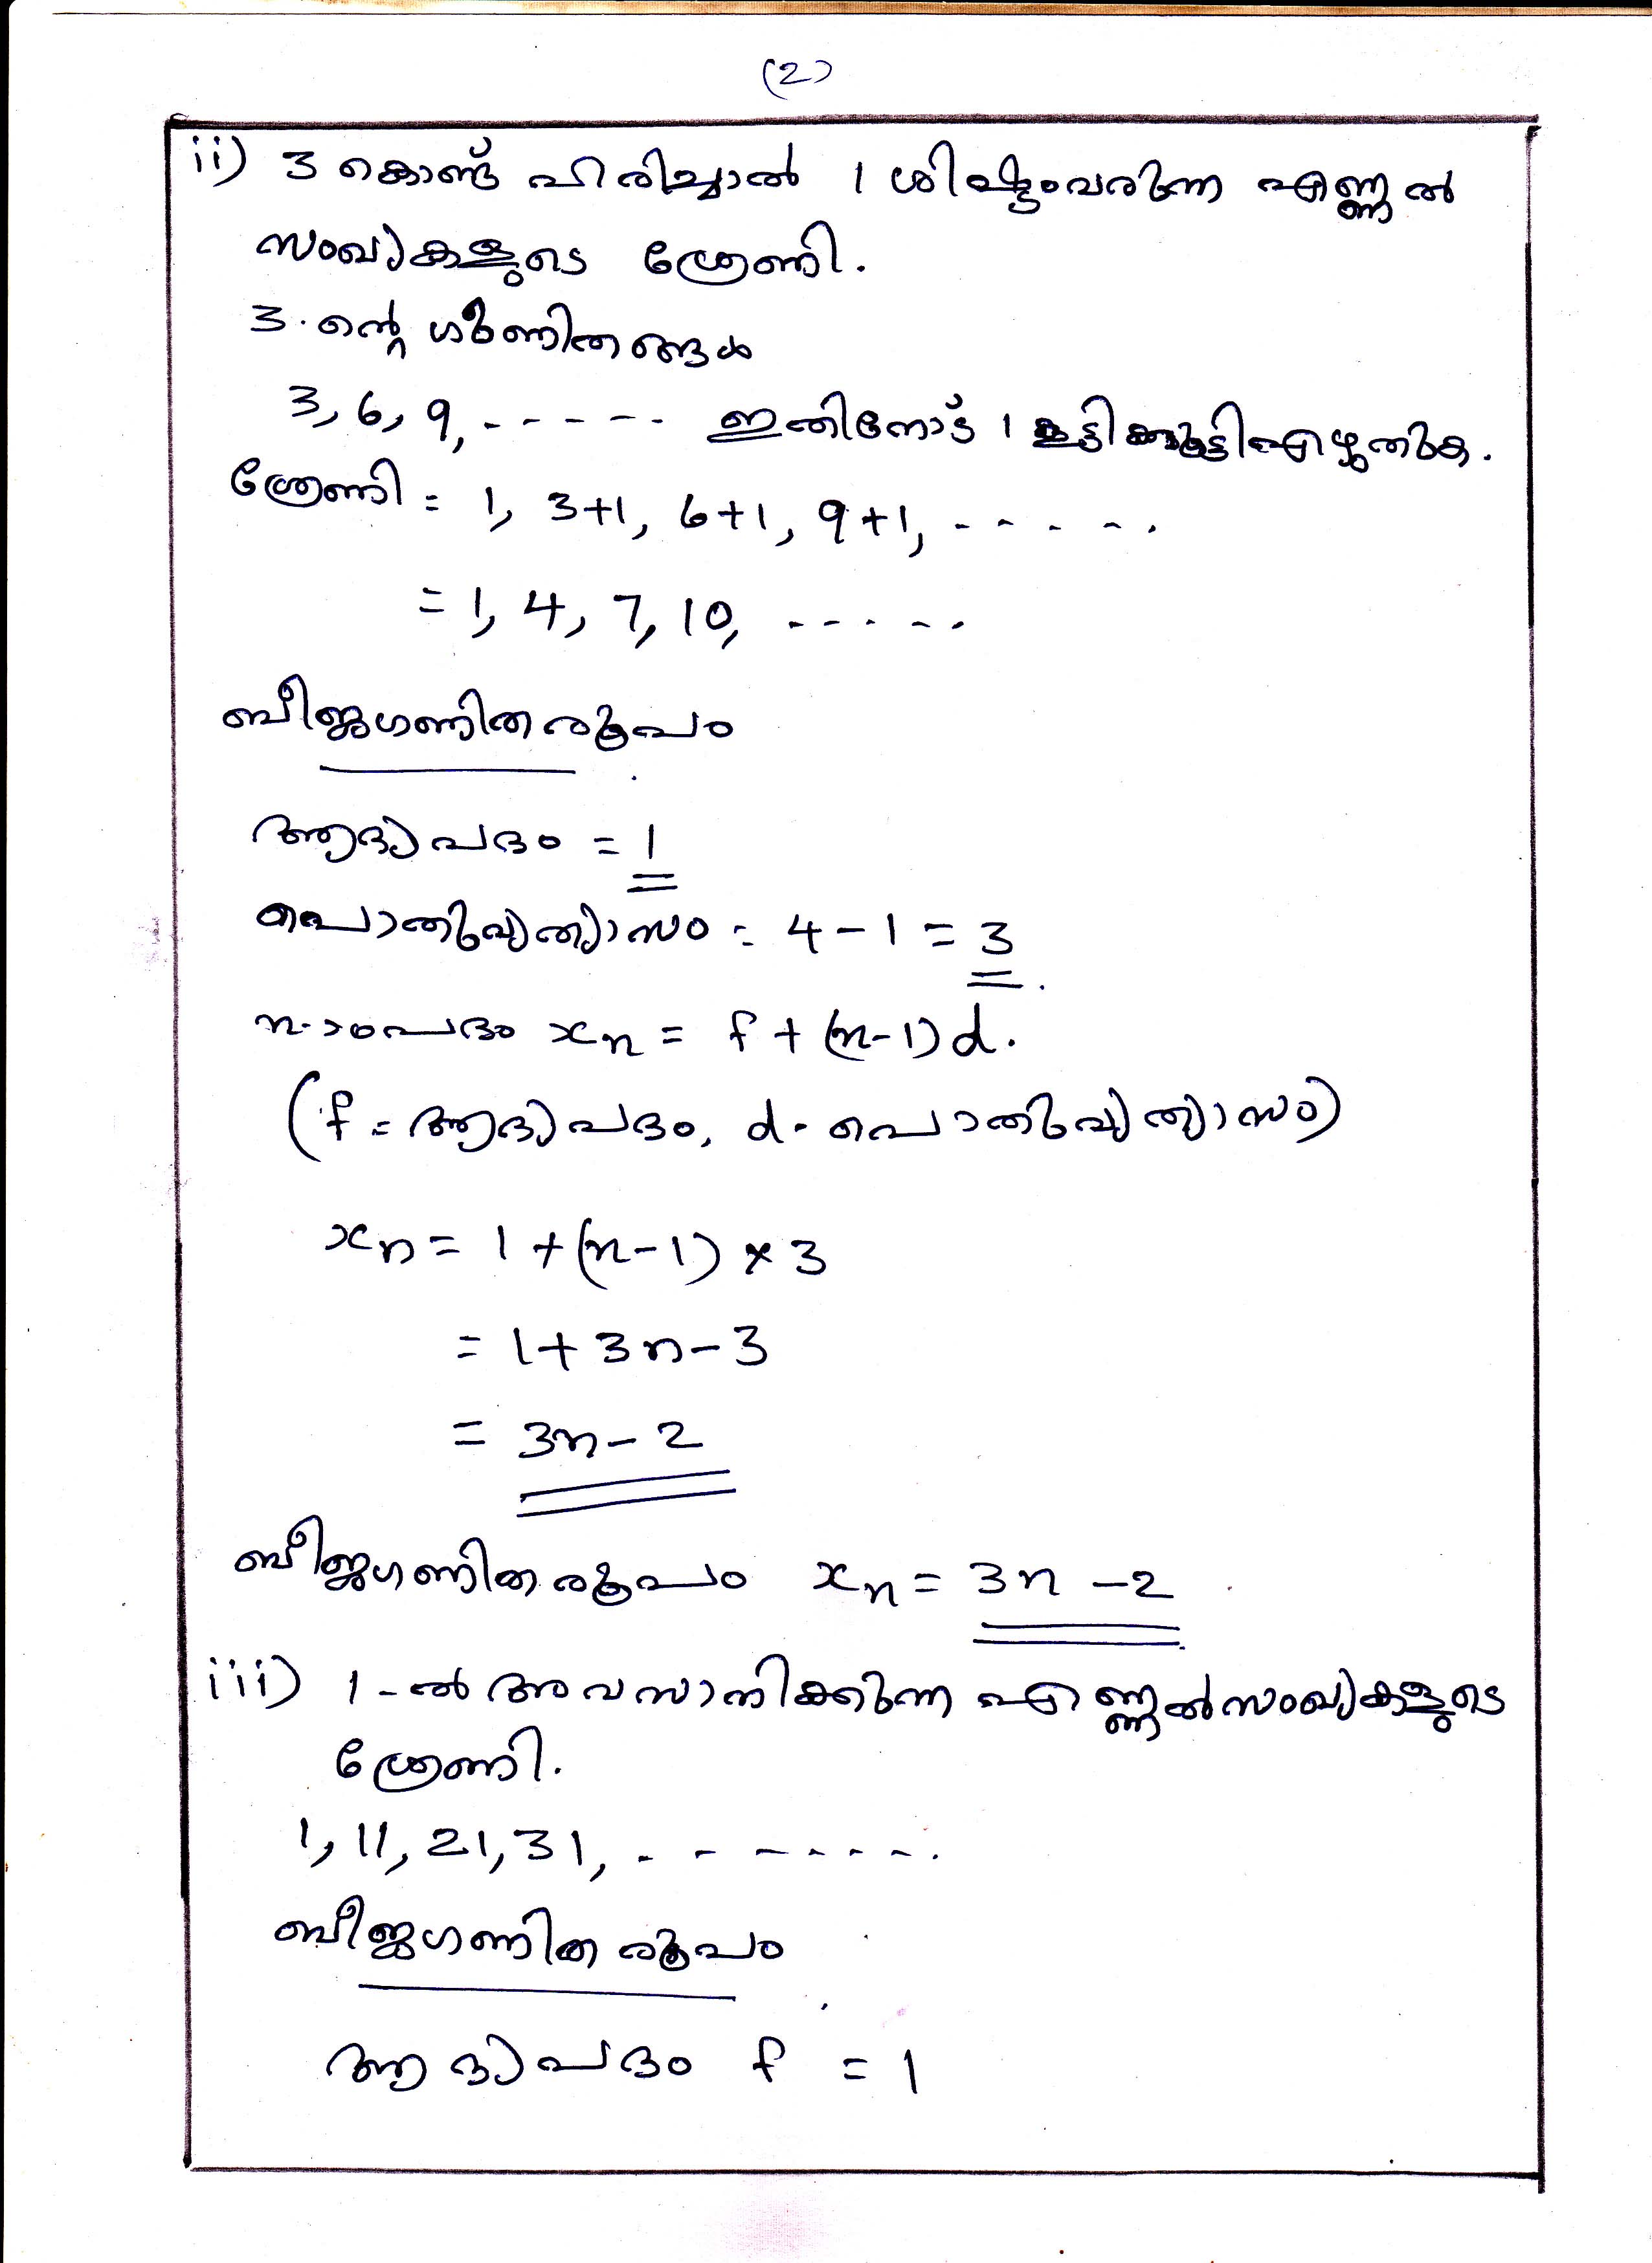 (2)
ii) 3 കൊണ്ട് ഹരിച്ചാൽ 1 ശിഷ്ടംവരുന്ന എണ്ണൽ
സംഖ്യകളുടെ ശ്രേണി.
3-ന്റെ ഗുണിതങ്ങൾ
3, 6, 9, ------ ഇതിനോട് 1 കൂട്ടി എഴുതുക.
ശ്രേണി = 1, 3+1, 6+1, 9+1, -----.
= 1, 4, 7, 10, -----
ബീജഗണിതരൂപം
ആദ്യപദം = 1
പൊതുവ്യത്യാസം = 4-1 = 3
n-ാംപദം xn = f + (n-1)d.
(f = ആദ്യപദം, d = പൊതുവ്യത്യാസം)
xn = 1 + (n-1) × 3
= 1+3n-3
= 3n-2
ബീജഗണിതരൂപം xn = 3n-2
iii) 1-ൽ അവസാനിക്കുന്ന എണ്ണൽസംഖ്യകളുടെ
ശ്രേണി.
1, 11, 21, 31, -------.
ബീജഗണിതരൂപം
ആദ്യപദം f = 1